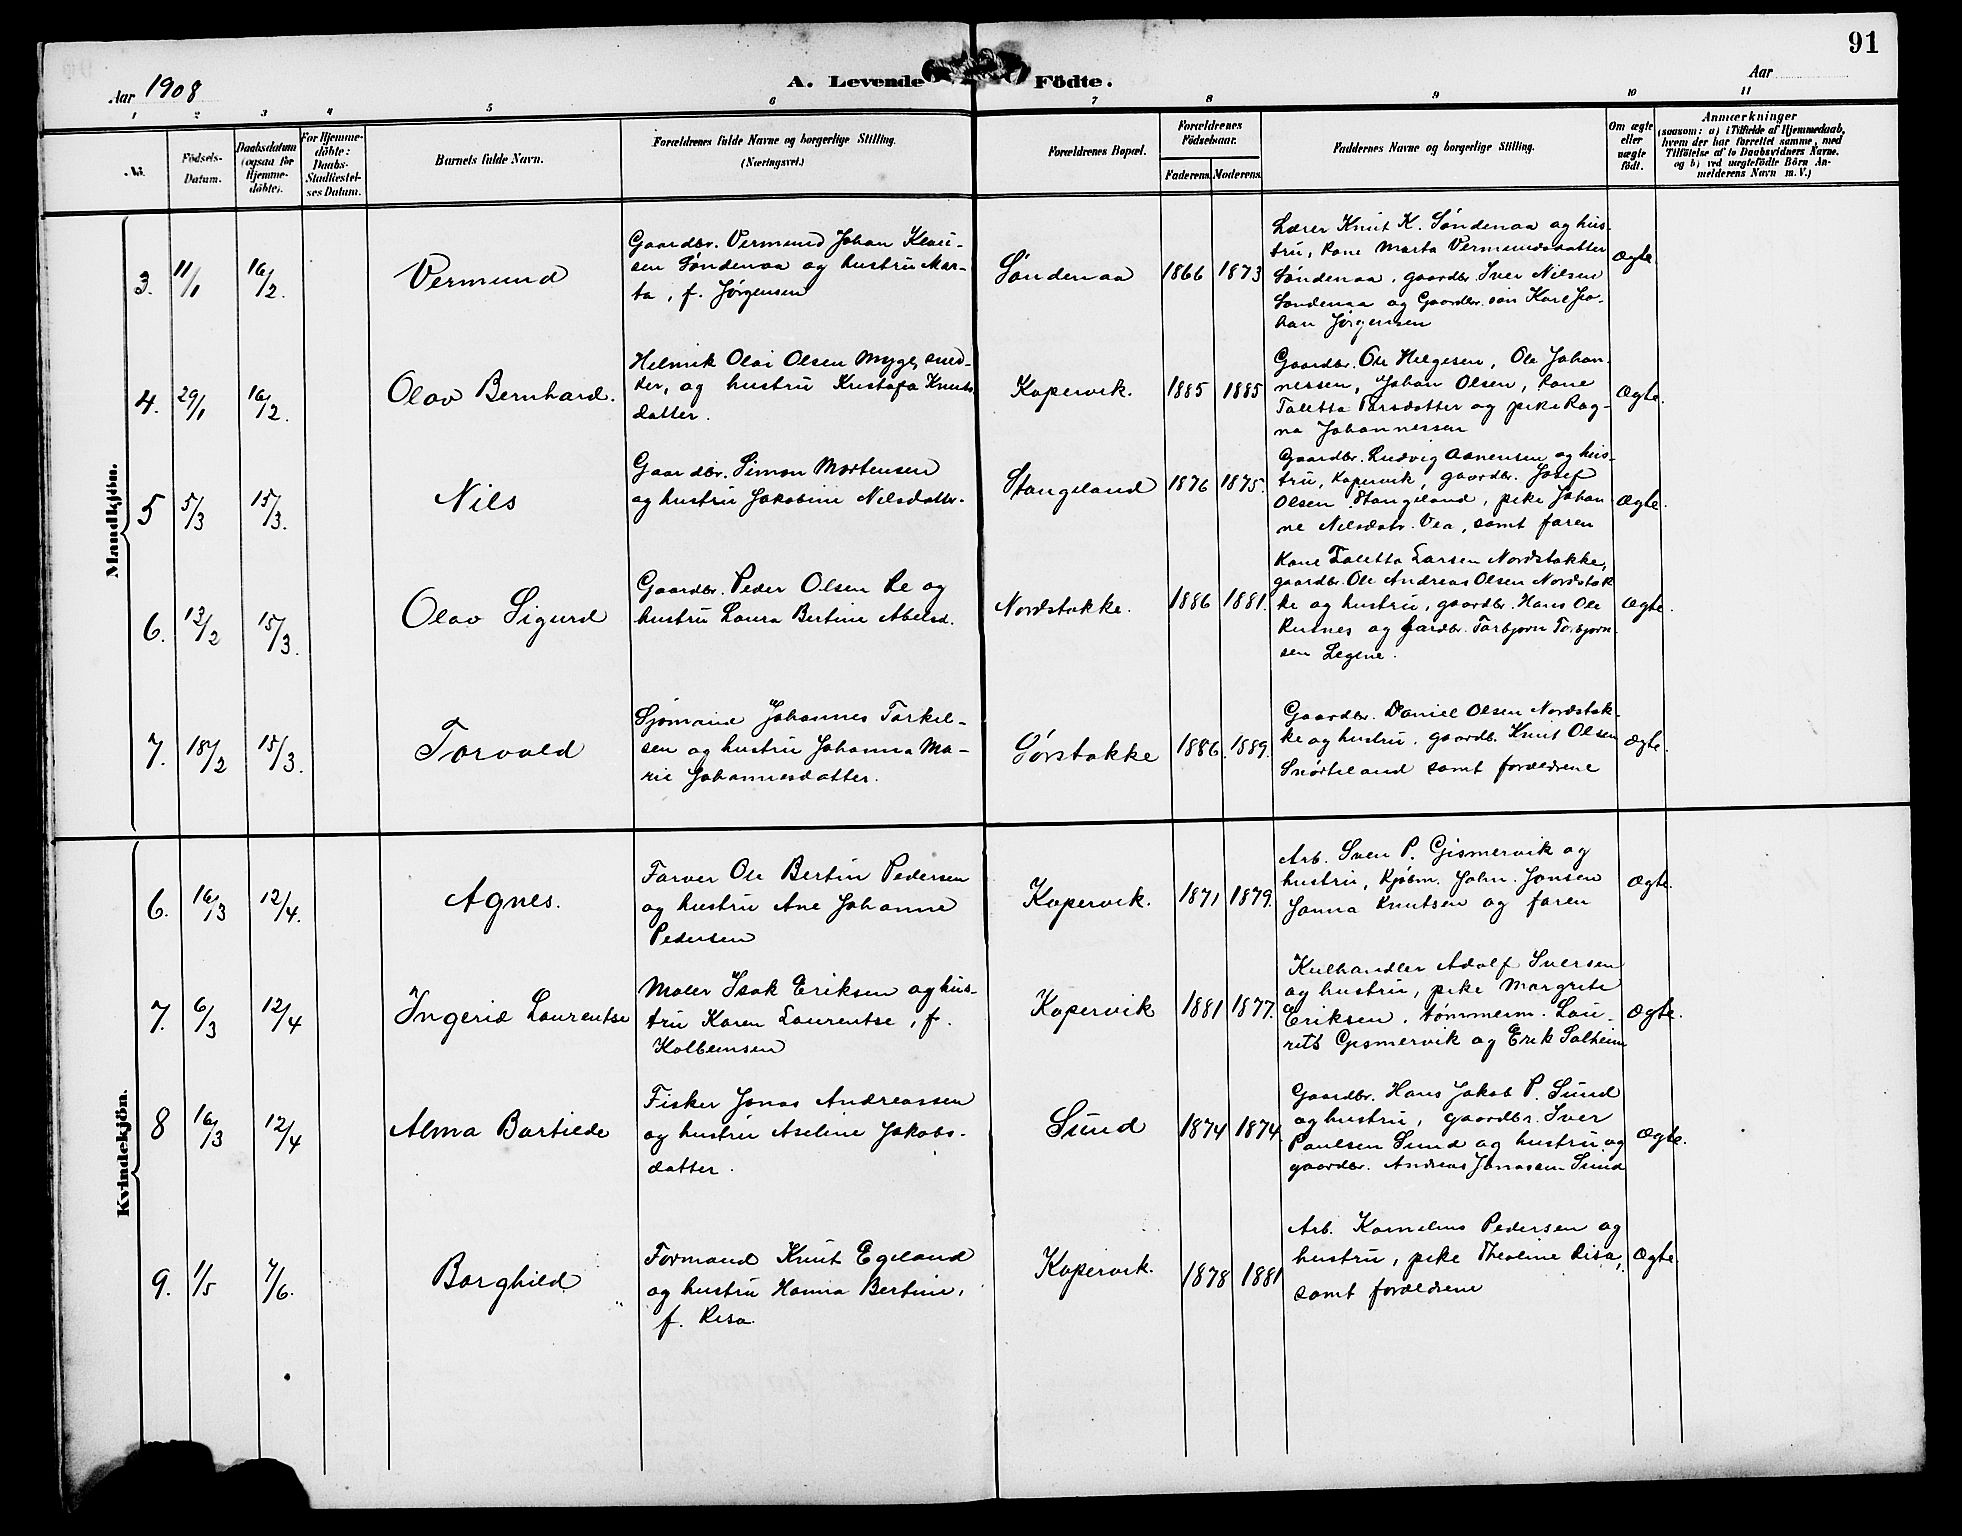 91
Aar 1908
A. Levende Födte.
Aar
1 2 3 4 5 6 7 8 9 10 11
No.
Födsels-
Datum.
Daabsdatum
(ogsaa for
Hjemme-
døbte).
For Hjemme-
döbte:
Daabs-
Stadfæstel-
ses Datum.
Barnets fulde Navn.
Forældrenes fulde Navne og borgerlige Stilling.
(Næringsvei.)
Forældrenes Bopæl.
Forældrenes
Födselsaar.
Faderens. Moderens.
Faddernes Navne og borgerlige Stilling.
Om ægte
eller
uægte
född.
Anmærkninger
(saasom: a) i Tilfælde af Hjemmedaab,
hvem der har forrettet samme, med
Tilföielse af to Daabsvidners Navne.
og b) ved uægtefödte Börn An-
melderens Navn m. V.)
Mandkjön.
3. 11/1 16/2. Vermund
Gaardbr. Vermund Johan Klau-
sen Søndenaa og hustru Mar-
ta, f. Jørgensen
Søndenaa 1866 1873
Lærer Knut K. Søndenaa og hus-
tru, kone Marta Vermundsdatter
Søndenaa, gaardbr. Iver Nilsen
Søndenaa og Gaardbr. søn Karl Jo-
han Jørgensen
Ægte
4. 29/1 16/2. Olav Bernhard.
Helmik Olai Olsen Myge, smed-
der, og hustru Kristofa Knuts
datter.
Kopervik. 1885 1885
Gaardbr. Ole Helgesen, Ole Johan-
nessen, Johan Olsen, kone
Taletta Larsdatter og pike Rag-
na Johannessen
Ægte.
5 5/3 15/3. Nils
Gaardbr. Simon Mortensen
og hustru Jakobine Nilsdatter.
Stangeland 1876 1875.
Gaardbr. Ludvig Aanensen og hus-
tru, Kopervik, gaardbr. Josef
Olsen Stangeland, pike Johan
ne Nilsdatr. Vea, samt faren
Ægte.
6. 12/2 15/3. Olav Sigurd
Gaardbr. Peder Olsen Le og
hustru Laura Bertine Abelsd.
Nordstokke. 1886 1881.
Kone Taletta Larsen Nordstokke,
gaardbr. Ole Andreas Olsen Nordstok
ke og hustru, gaardbr. Hans Ole
Rusnes og gardbr. Torbjørn Torbjørn-
sen Legene.
Ægte.
7. 18/2 15/3. Torvald
Sjømand Johannes Torkel-
sen og hustru Johanna Ma-
rie Johannesdatter.
Sørstokke 1886. 1889.
Gaardbr. Daniel Olsen Nordstok-
ke og hustru, gaardb. Knut Olsen
Snørteland samt forældrene
Ægte.
Kvindekjön.
6. 16/3 12/4. Agnes.
Farver Ole Bertin Pedersen
og hustru Ane Johanne
Pedersen
Kopervik. 1871 1879.
Arb. Sven P. Gismervik og
hustru, Kjøbm. John. Jonsen
Janna Knutsen og faren
Ægte.
7. 6/3 12/4 Ingerid Laurentse
Maler Isak Eriksen og hus-
tru Karen Laurentse, f.
Kolbensen
Kopervik 1881 1877.
Kulhandler Adolf Iversen
og hustru, pike Margrete
Eriksen, tømmerm. Lau-
rits Gismervik og Erik Solheim
Ægte.
8 16/3 12/4 Alma Bortilde
Fisker Jonas Andreassen
og hustru Aseline Jakobs-
datter.
Sund 1874 1874.
Gaardbr. Hans Jakob P. Sund
og hustru, gaardbr. Iver
Paulsen Sund og hustru og
gaardbr. Andreas Jonasen Sund
Ægte.
9. 1/5 7/6. Borghild
Formand Knut Egeland
og hustru Hanna Bertine,
f. Risa
Kopervik. 1878 1881
Arb. Kornelius Pedersen og
hustru, pike Theoline Risa,
samt forældrene
Ægte